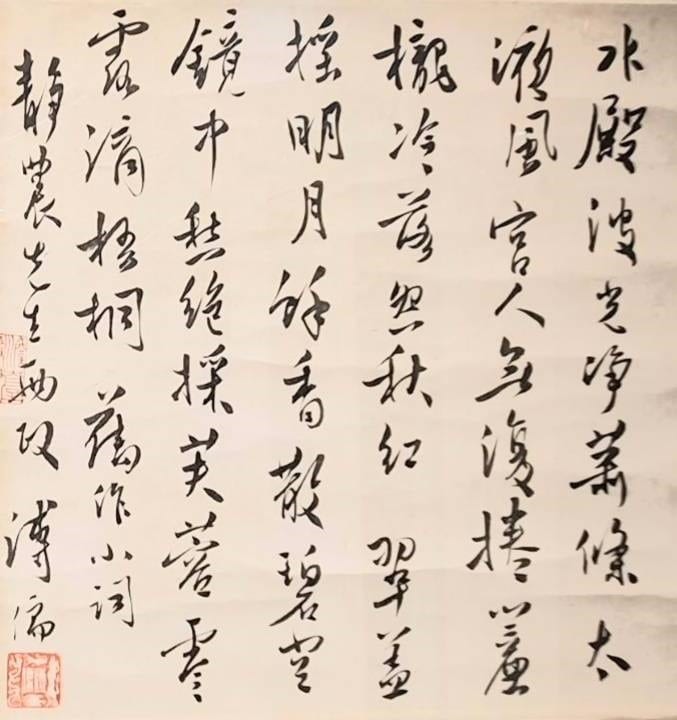 水殿波光净蕭條太
液風宮人無復捲簾
櫳冷落怨秋紅 翠蓋
搖明月餘香散碧空
鏡中愁絕採芙蓉零
露滴梧桐 舊作小詞
靜農先生兩政 溥儒